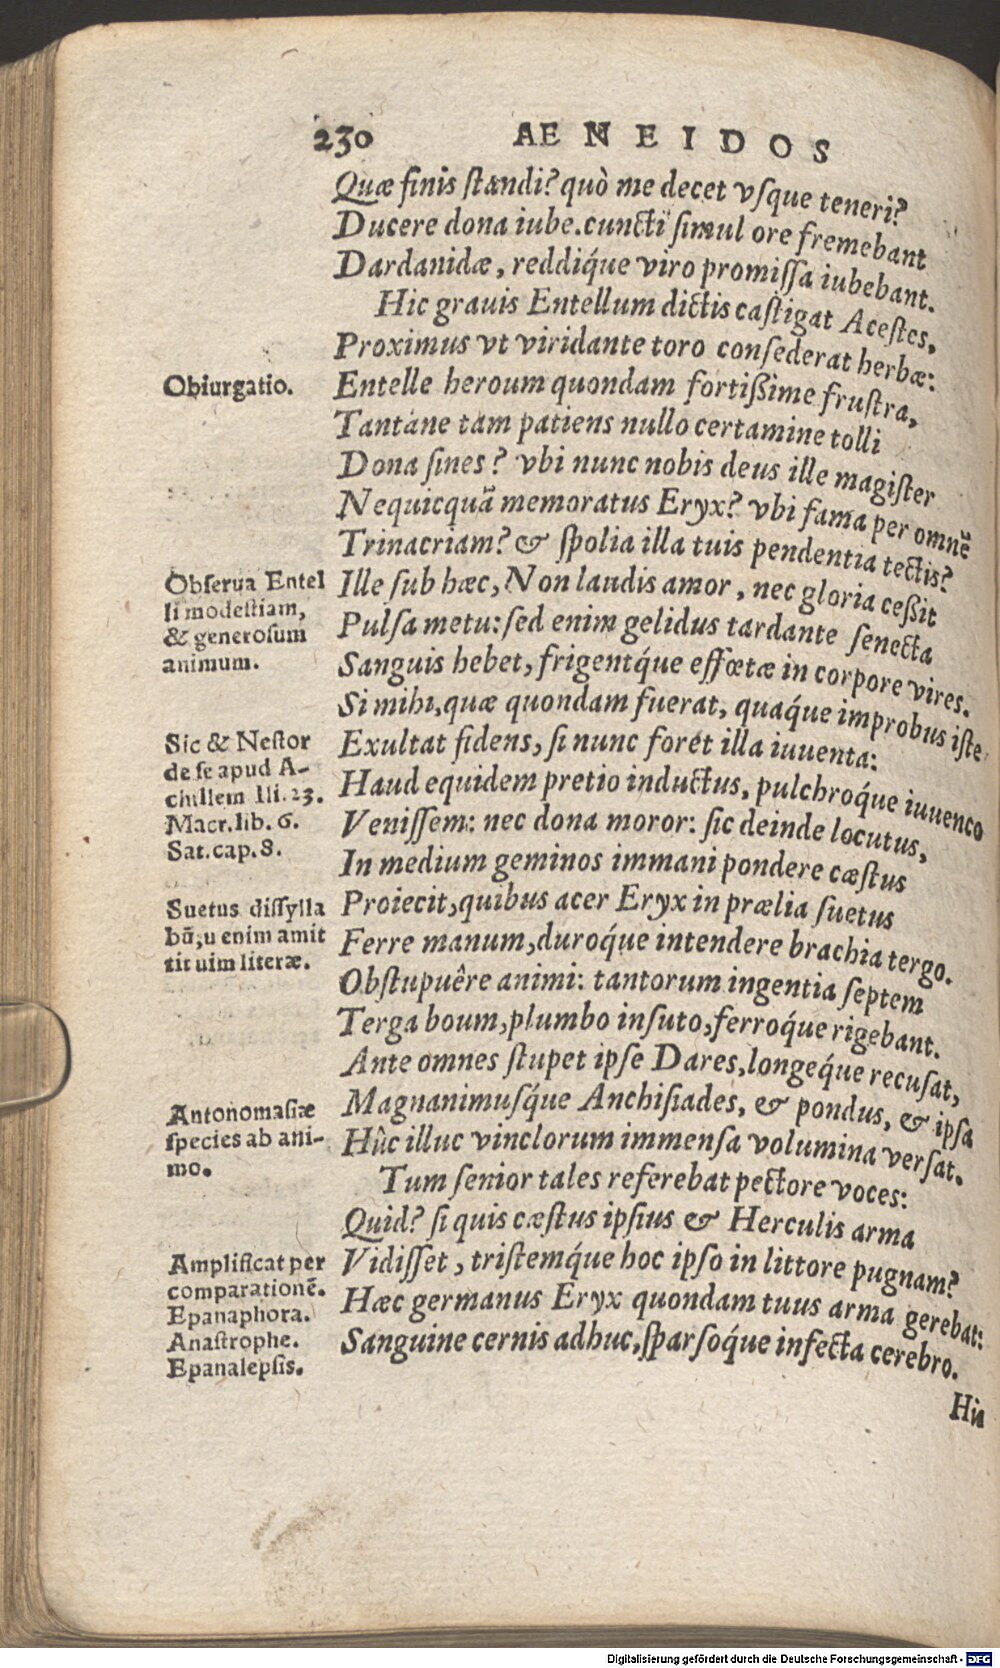 230 AENEIDOS
Quæ finis standi? quò me decet vsque teneri?
Ducere dona iube. cuncti simul ore fremebant
Dardanidæ, reddiq́ue viro promissa iubebant.
Hic grauis Entellum dictis castigat Acestes,
Proximus vt viridante toro consederat herbæ:
Obiurgatio.
Entelle heroum quondam fortißime frustra,
Tantane tam patiens nullo certamine tolli
Dona sines? vbi nunc nobis deus ille magister
Nequicquã memoratus Eryx? vbi fama per omnẽ
Trinacriam? & spolia illa tuis pendentia tectis?
Obserua Entel
li modestiam,
& generosum
animum.
Ille sub hæc, Non laudis amor, nec gloria ceßit
Pulsa metu: sed enim gelidus tardante senecta
Sanguis hebet, frigentq́ue effœtæ in corpore vires.
Si mihi, quæ quondam fuerat, quaq́ue improbus iste
Sic & Nestor
de se apud A-
chillem Ili. 23.
Macr. lib. 6.
Sat. cap. 8.
Exultat fidens, si nunc foret illa iuuenta:
Haud equidem pretio inductus, pulchroq́ue iuuenco
Venissem: nec dona moror: sic deinde locutus,
In medium geminos immani pondere cæstus
Suetus dissylla
bũ, u enim amit
tit uim literæ.
Proiecit, quibus acer Eryx in prælia suetus
Ferre manum, duroq́ue intendere brachia tergo.
Obstupuêre animi: tantorum ingentia septem
Terga boum, plumbo insuto, ferroq́ue rigebant.
Ante omnes stupet ipse Dares, longeq́ue recusat,
Antonomasiæ
species ab ani-
mo.
Magnanimusq́ue Anchisiades, & pondus, & ipsa
Hûc illuc vinclorum immensa volumina versat.
Tum senior tales referebat pectore voces:
Quid? si quis cæstus ipsius & Herculis arma
Amplificat per
comparationẽ.
Epanaphora.
Anastrophe.
Epanalepsis.
Vidisset, tristemq́ue hoc ipso in littore pugnam?
Hæc germanus Eryx quondam tuus arma gerebat:
Sanguine cernis adhuc, sparsoq́ue infecta cerebro.
His
Digitalisierung gefördert durch die Deutsche Forschungsgemeinschaft - DFG